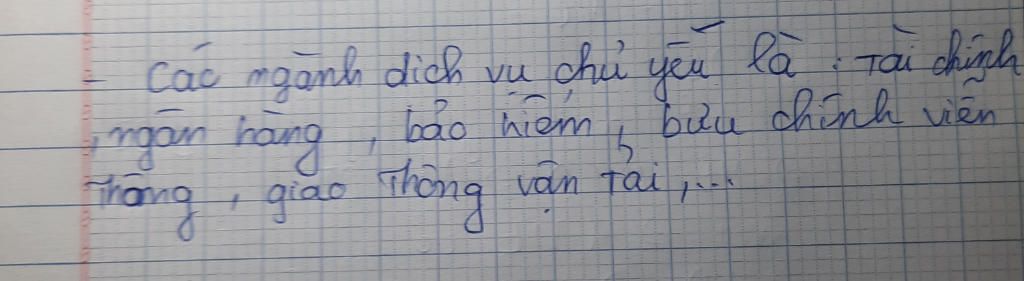 - Các ngành dịch vụ chủ yếu là : Tài chính
, ngân hàng, bảo hiểm, bưu chính viễn
thông, giao thông vận tải,...